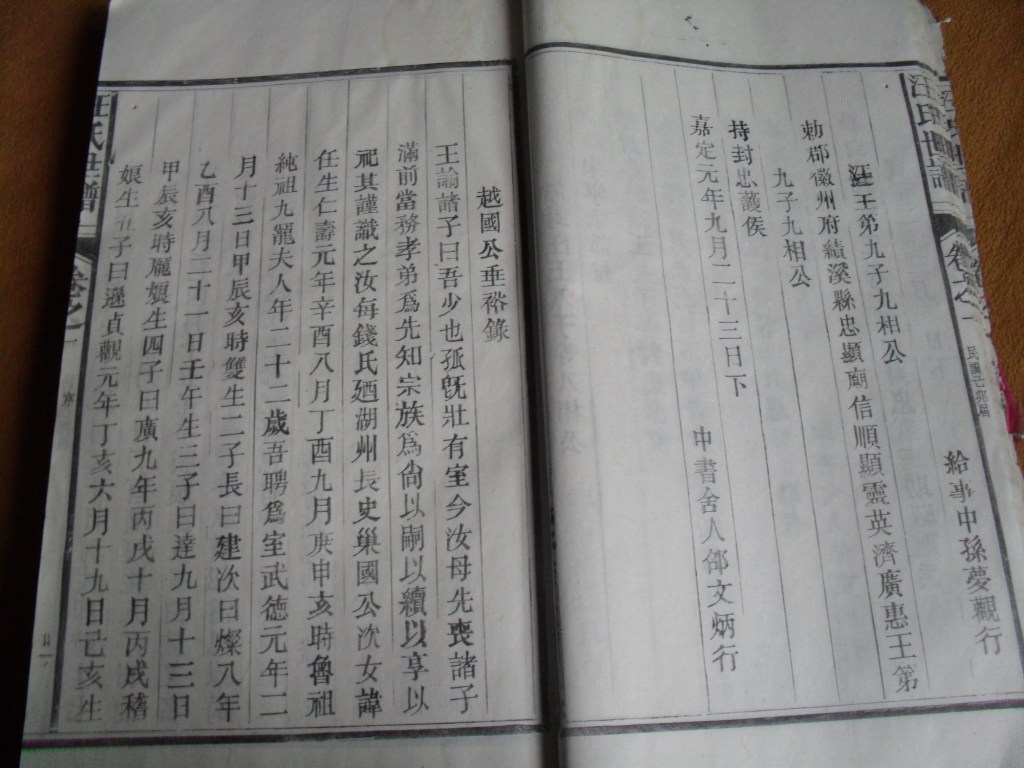 汪氏世譜
卷之一
給事中孫夢觀行
汪王第九子九相公
勅郡徽州府績溪縣忠顯廟信順顯靈英濟廣惠王第
九子九相公
持封忠護侯
嘉定元年九月二十三日下
中書舍人邵文炳行
越國公垂裕錄
王諭諸子曰吾少也孤旣壯有室今汝母先喪諸子
滿前當務孝弟爲先知宗族爲尙以嗣以續以享以
祀其謹識之汝每錢氏廼湖州長史巢國公次女諱
任生仁壽元年辛酉八月丁酉九月庚申亥時魯祖
純祖九龍夫人年二十二歲吾聘爲室武德元年二
月十三日甲辰亥時雙生二子長曰建次曰燦八年
乙酉八月二十一日壬午生三子曰達九月十三日
甲辰亥時龐娘生四子曰廣九年丙戌十月丙戌稽
娘生五子曰遜貞觀元年丁亥六月十九日己亥生
汪氏世譜
卷之一